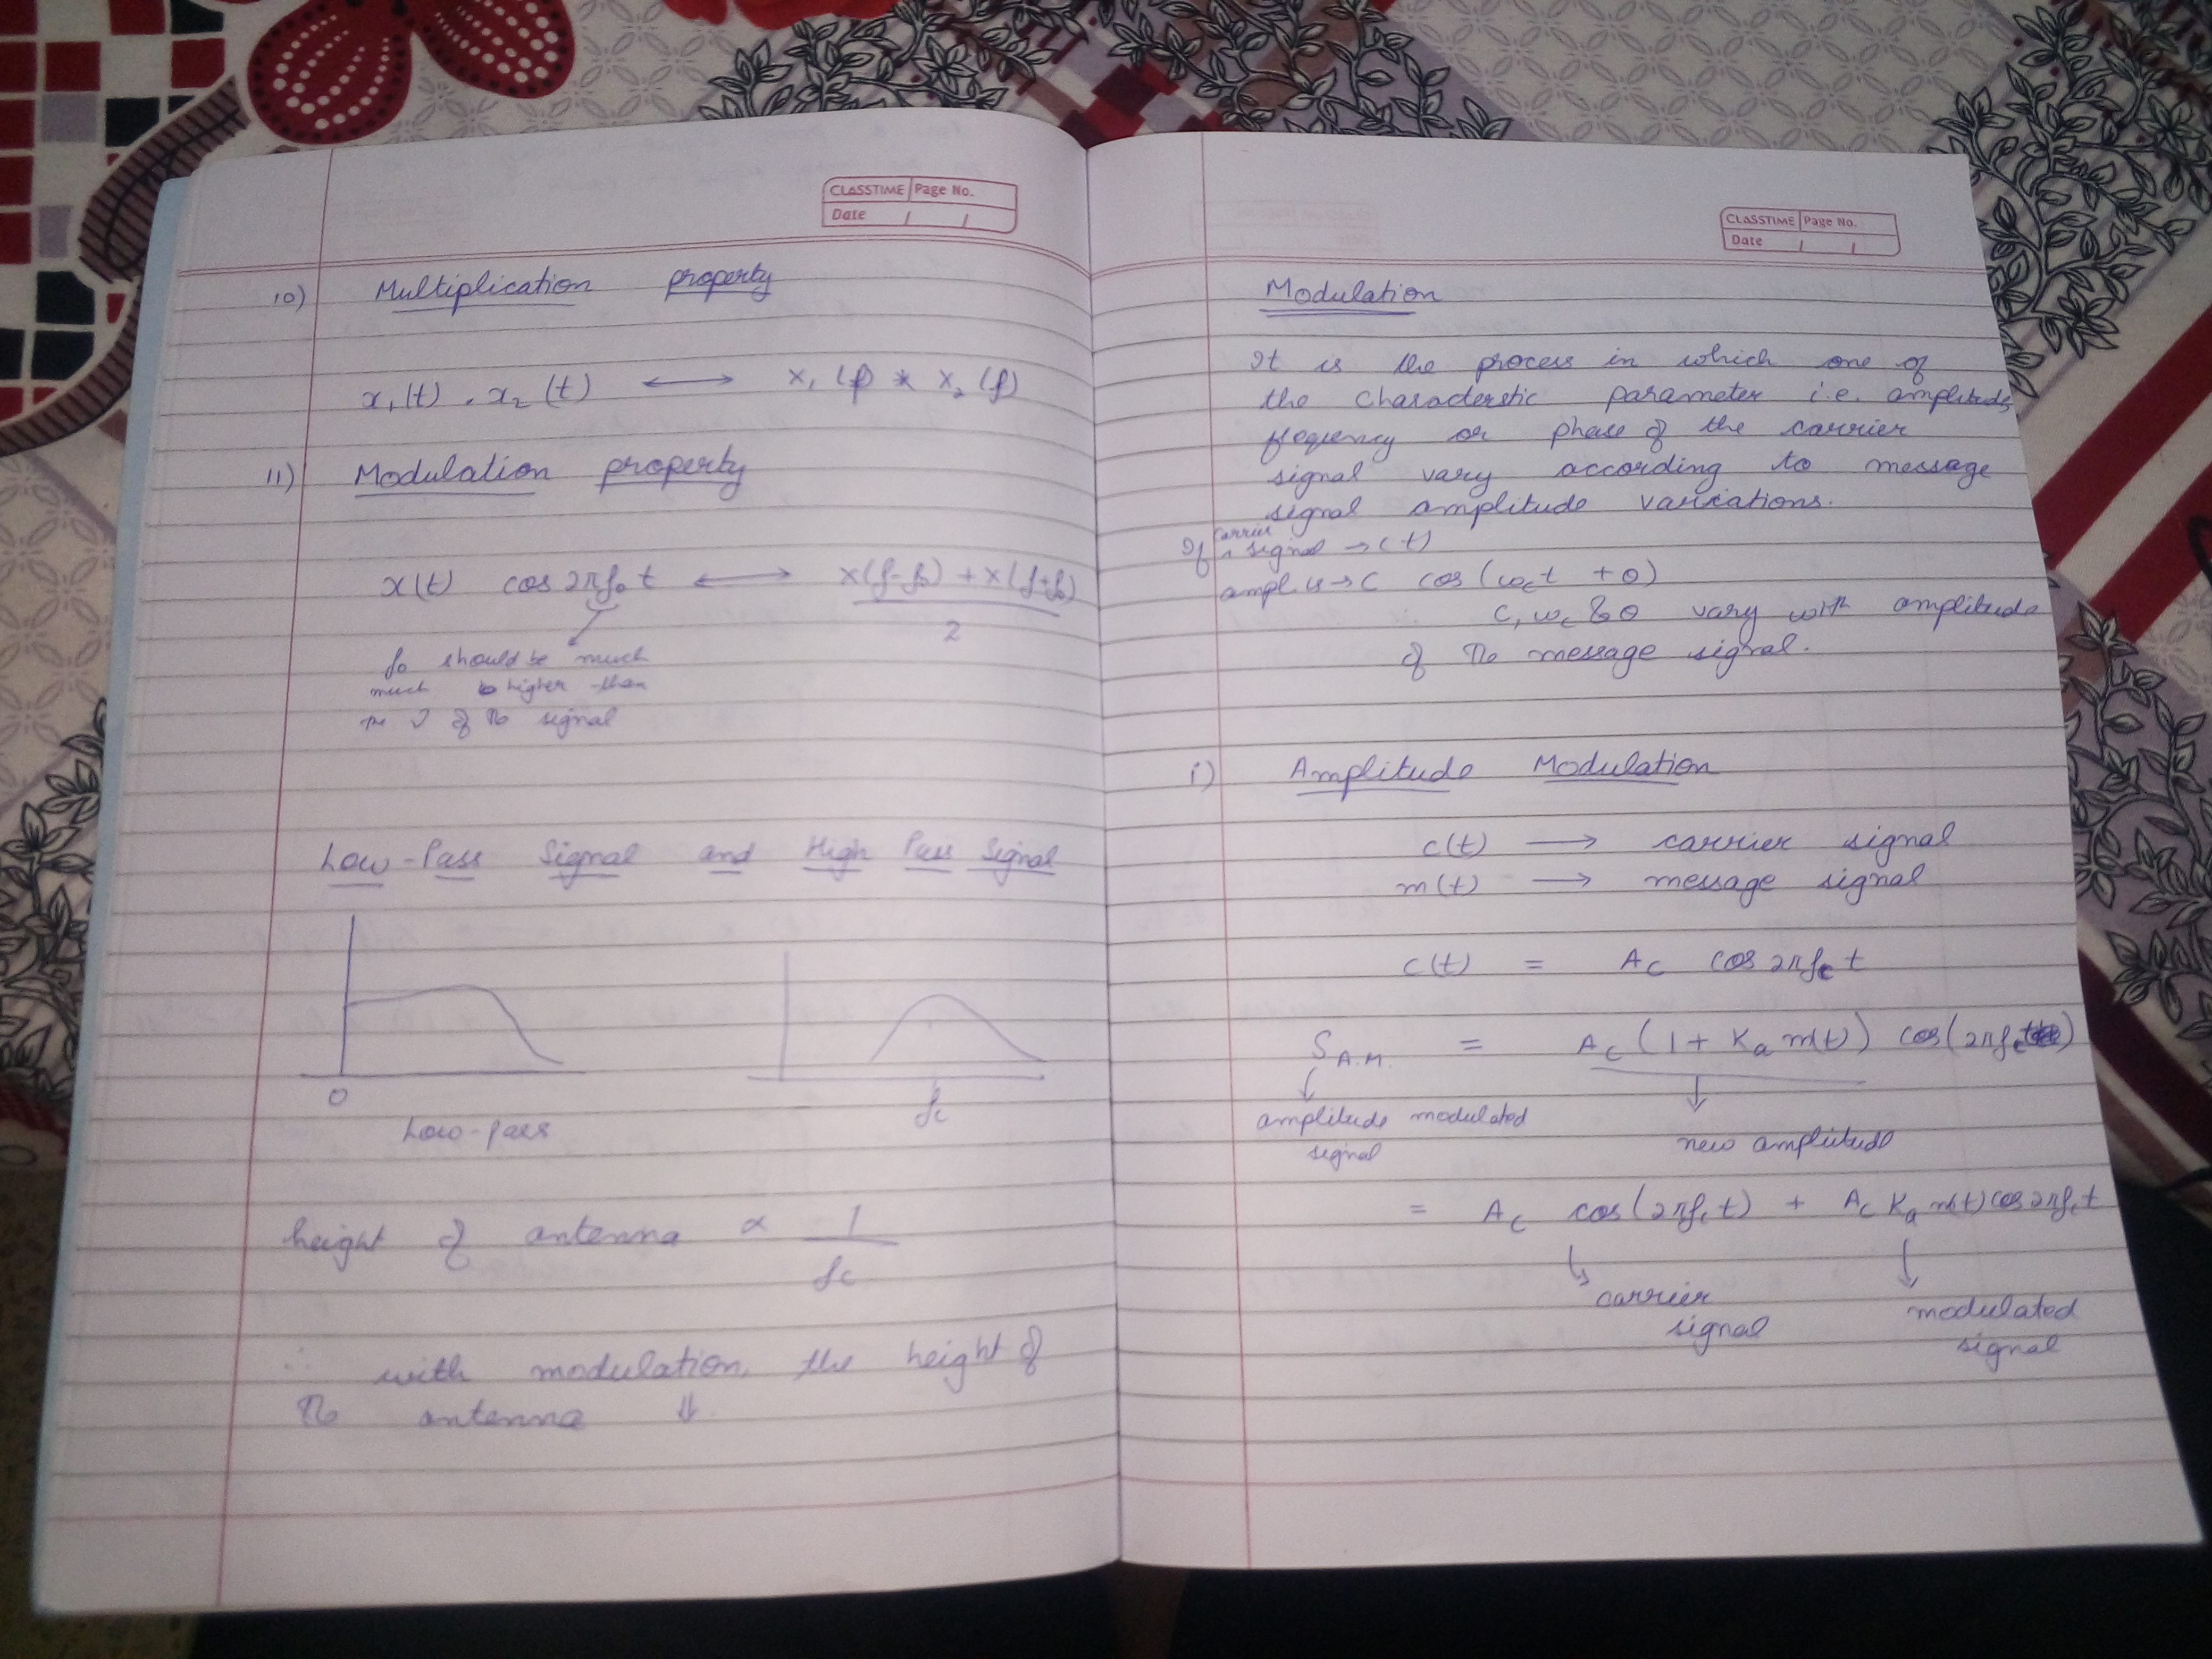 CLASSTIME Page No.
Date / /
10) Multiplication property
x₁(t) . x₂(t) ⟷ X₁(f) * X₂(f)
11) Modulation property
x(t) cos 2πf₀t ⟷ X(f-f₀) + X(f+f₀)
2
f₀ should be much
much higher than
the ν of the signal
Low-Pass Signal and High Pass Signal
0
fc
Low-pass
height of antenna ∝ 1
fc
∴ with modulation, the height of
the antenna ⇓.
CLASSTIME Page No.
Date / /
Modulation
It is the process in which one of
the characterstic parameter i.e. amplitude,
frequency or phase of the carrier
signal vary according to message
signal amplitude variations.
If carrier signal → c(t)
ampl. is → C cos(ωct + θ)
∴ C, ωc & θ vary with amplitude
of the message signal.
i) Amplitude Modulation
c(t) → carrier signal
m(t) → message signal
c(t) = Ac cos 2πfc t
S A.M. = Ac (1 + Ka m(t)) cos(2πfct)
amplitude modulated
signal
new amplitude
= Ac cos(2πfct) + Ac Ka m(t) cos 2πfct
carrier
signal
modulated
signal